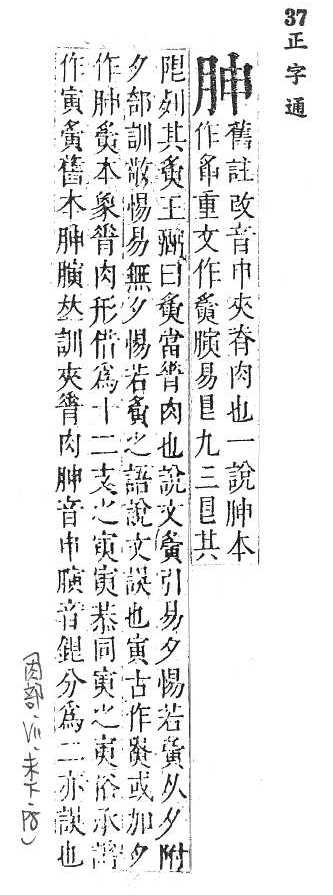 37
正字通
胂
舊註改音申夾脊肉也一說胂本
作重文作夤䐄易艮九三艮其
限列其夤王弼曰夤當脊肉也說文夤引易夕惕若夤从夕附
夕部訓敬惕易無夕惕若夤之語說文誤也寅古作或加夕
作胂夤本象脊肉形借爲十二支之寅寅恭同寅之寅俗承譌
作寅夤舊本胂䐄𠀤訓夾脊肉胂音申䐄音銀分爲二亦誤也
肉部